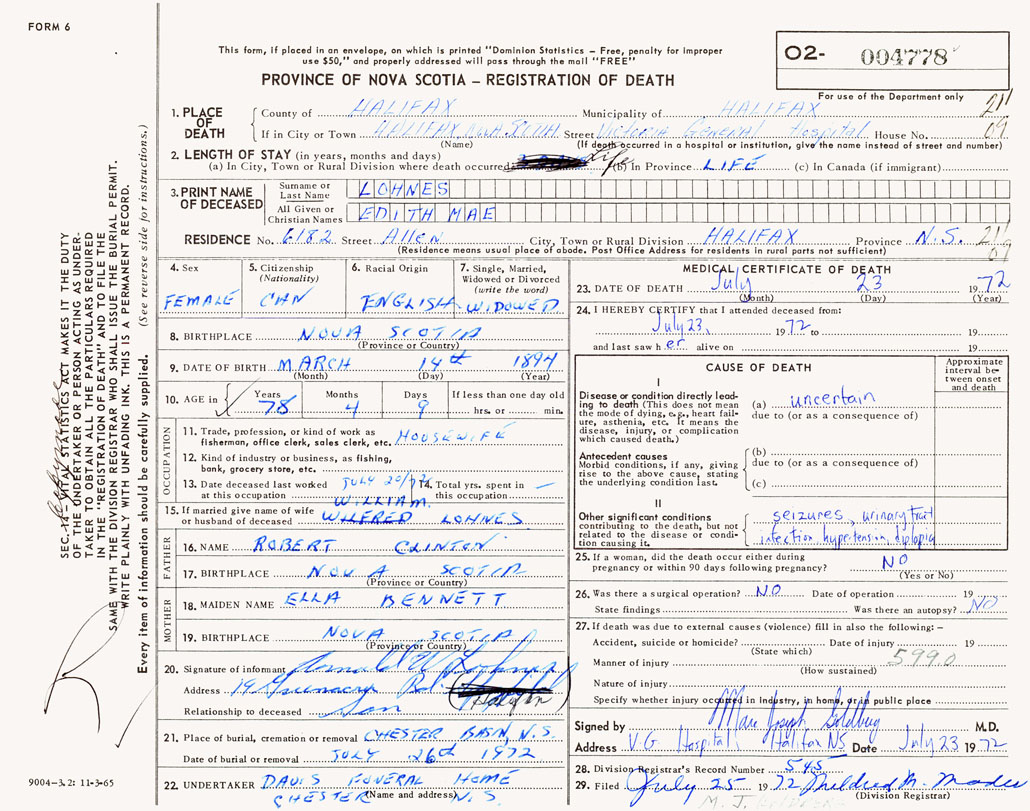 FORM 6
This form, if placed in an envelope, on which is printed "Dominion Statistics – Free, penalty for improper
use $50," and properly addressed will pass through the mail "FREE"
PROVINCE OF NOVA SCOTIA – REGISTRATION OF DEATH
O2- 004778
For use of the Department only
1. PLACE OF DEATH
County of HALIFAX Municipality of HALIFAX
If in City or Town HALIFAX, NOVA SCOTIA Street Victoria General Hospital House No.
(Name) (If death occurred in a hospital or institution, give the name instead of street and number)
21
09
2. LENGTH OF STAY (in years, months and days)
(a) In City, Town or Rural Division where death occurred Life (b) In Province LIFE (c) In Canada (if immigrant)
3. PRINT NAME OF DECEASED
Surname or Last Name LOHNES
All Given or Christian Names EDITH MAE
RESIDENCE No. 6182 Street Allen City, Town or Rural Division HALIFAX Province N.S. 21
09
(Residence means usual place of abode. Post Office Address for residents in rural parts not sufficient)
4. Sex FEMALE
5. Citizenship (Nationality) CAN
6. Racial Origin ENGLISH
7. Single, Married, Widowed or Divorced (write the word) WIDOWED
8. BIRTHPLACE NOVA SCOTIA
(Province or Country)
9. DATE OF BIRTH MARCH 14th 1894
(Month) (Day) (Year)
10. AGE in Years 78 Months 4 Days 9 If less than one day old hrs. or min.
OCCUPATION
11. Trade, profession, or kind of work as fisherman, office clerk, sales clerk, etc. HOUSEWIFE
12. Kind of industry or business, as fishing, bank, grocery store, etc.
13. Date deceased last worked at this occupation JULY 20/72
14. Total yrs. spent in this occupation —
WILLIAM
15. If married give name of wife or husband of deceased WILFRED LOHNES
FATHER
16. NAME ROBERT CLINTON
17. BIRTHPLACE NOVA SCOTIA
(Province or Country)
MOTHER
18. MAIDEN NAME ELLA BENNETT
19. BIRTHPLACE NOVA SCOTIA
(Province or Country)
20. Signature of informant
Address 19
Relationship to deceased Son
21. Place of burial, cremation or removal CHESTER BASIN, N.S.
Date of burial or removal JULY 26th 1972
22. UNDERTAKER DAVIS FUNERAL HOME
CHESTER (Name and address) N.S.
MEDICAL CERTIFICATE OF DEATH
23. DATE OF DEATH July 23 1972
(Month) (Day) (Year)
24. I HEREBY CERTIFY that I attended deceased from:
July 23, 1972 to 19
and last saw her alive on 19
CAUSE OF DEATH
Approximate interval between onset and death
I
Disease or condition directly leading to death (This does not mean the mode of dying, e.g., heart failure, asthenia, etc. It means the disease, injury, or complication which caused death.)
(a) uncertain
due to (or as a consequence of)
Antecedent causes
Morbid conditions, if any, giving rise to the above cause, stating the underlying condition last.
(b)
due to (or as a consequence of)
(c)
II
Other significant conditions contributing to the death, but not related to the disease or condition causing it.
seizures, urinary tract
infection, hypertension, diplopia
25. If a woman, did the death occur either during pregnancy or within 90 days following pregnancy? NO
(Yes or No)
26. Was there a surgical operation? NO Date of operation 19
State findings Was there an autopsy? NO
27. If death was due to external causes (violence) fill in also the following:–
Accident, suicide or homicide? Date of injury 19
(State which)
Manner of injury 599.0
(How sustained)
Nature of injury
Specify whether injury occurred in industry, in home, or in public place
Signed by Marc Joseph Goldberg M.D.
Address V.G. Hospital, Halifax NS Date July 23 1972
28. Division Registrar's Record Number 545
29. Filed July 25 1972 Mildred M.
(Division Registrar)
SEC. 14–VITAL STATISTICS ACT MAKES IT THE DUTY
OF THE UNDERTAKER OR PERSON ACTING AS UNDER-
TAKER TO OBTAIN ALL THE PARTICULARS REQUIRED
IN THE "REGISTRATION OF DEATH" AND TO FILE THE
SAME WITH THE DIVISION REGISTRAR WHO SHALL ISSUE THE BURIAL PERMIT.
WRITE PLAINLY WITH UNFADING INK. THIS IS A PERMANENT RECORD.
Every item of information should be carefully supplied. (See reverse side for instructions.)
9004–3.2: 11-3-65